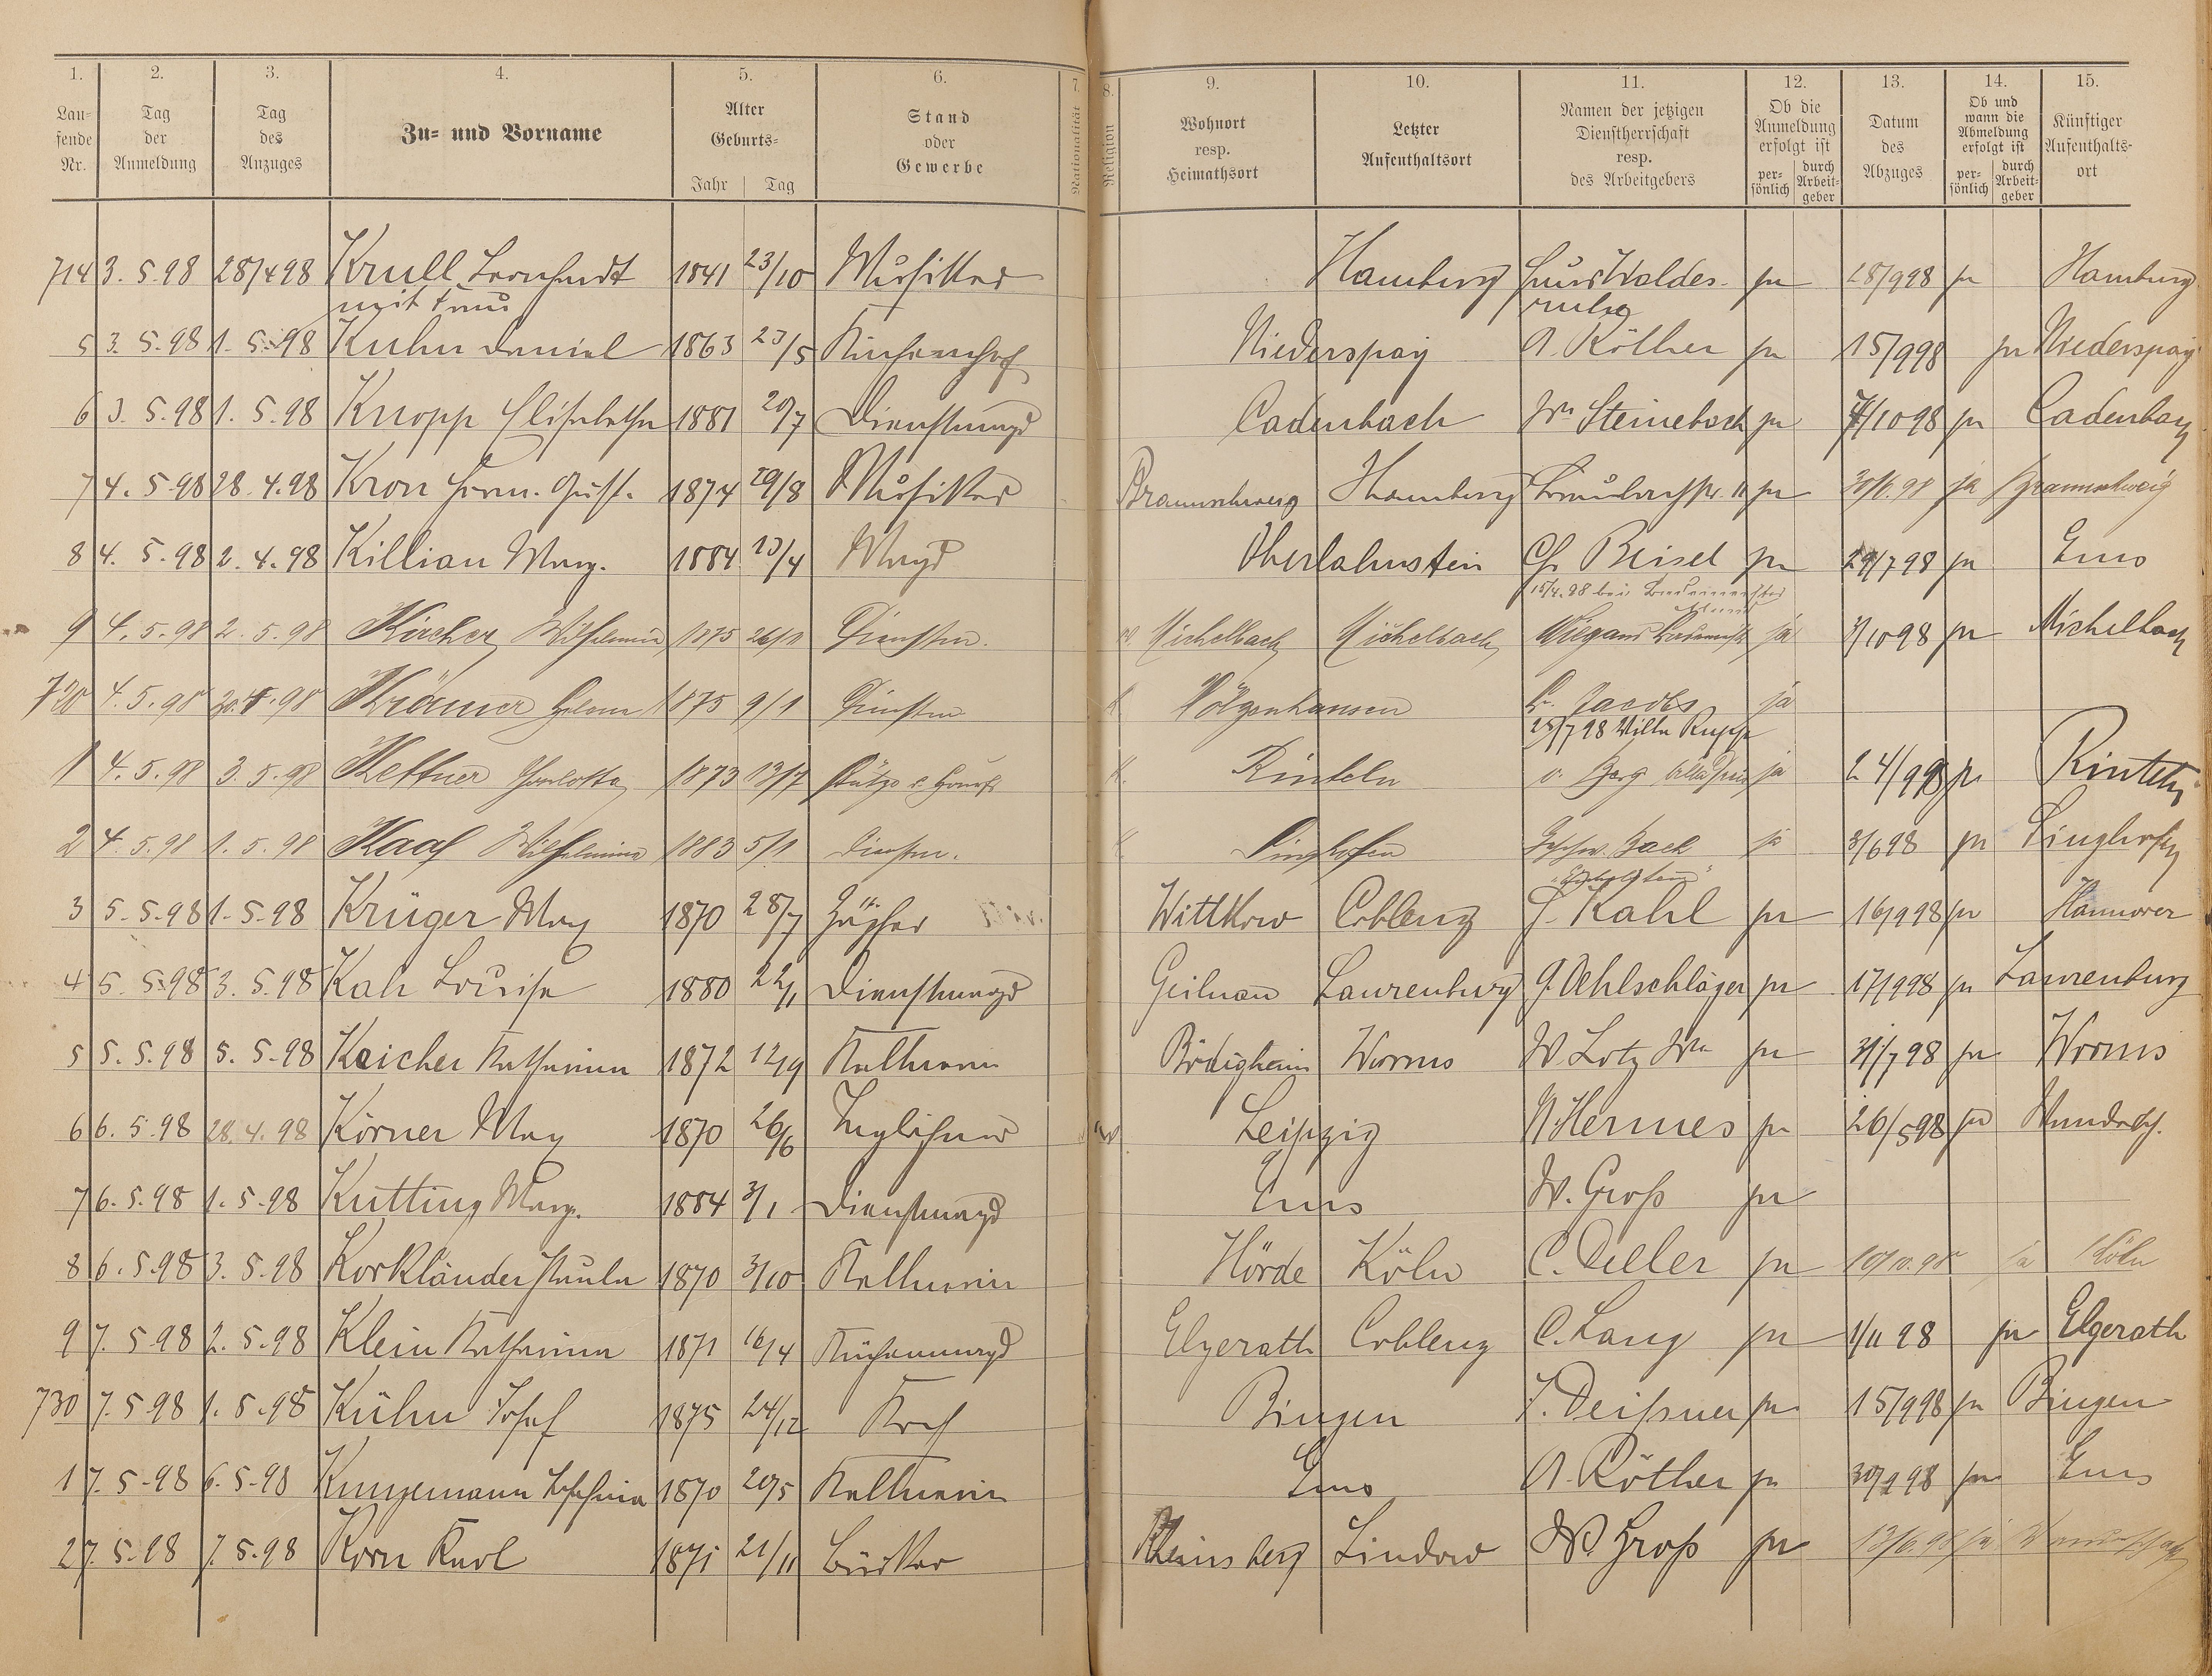 1. 2. 3. 4. 5. 6. 7. 8. 9. 10. 11. 12. 13. 14. 15.
Lau-fende Nr.
Tag der Anmeldung
Tag des Anzuges
Zu- und Vorname
Alter Geburts- Jahr Tag
Stand oder Gewerbe
Nationalität
Religion
Wohnort resp. Heimathsort
Letzter Aufenthaltsort
Namen der jetzigen Dienstherrschaft resp. des Arbeitgebers
Ob die Anmeldung erfolgt ist per-sönlich durch Arbeit-geber
Datum des Abzuges
Ob und wann die Abmeldung erfolgt ist per-sönlich durch Arbeit-geber
Künftiger Aufenthalts-ort
714 3.5.98 28/4 98 Krull Bernhardt 1841 23/10 Musiker Hamburg Haus Waldes- ja 28/9 98 ja Hamburg
mit Frau ruhe
5 3.5.98 1.5.98 Kuhn Daniel 1863 23/5 Küchenchef Niederspay A. Röther ja 15/9 98 ja Niederspay
6 3.5.98 1.5.98 Knopp Elisabetha 1881 20/7 Dienstmagd Cadenbach Wn Steinebach ja /10 98 ja Cadenbach
7 4.5.98 28.4.98 Kron Herm. Gust. 1874 29/8 Musiker Braunschweig Hamburg ja 98 ja Braunschweig
8 4.5.98 2.4.98 Killian Marg. 1884 13/4 Magd Oberlahnstein Ch. Beisel ja 29/7 98 ja Ems
15/4.98 bei
9 4.5.98 2.5.98 Kircher Wilhelmine 1875 26/1 Dienstm. Michelbach Michelbach Wiegand ja 1/10 98 ja Michelbach
720 4.5.98 98 Krämer Helene 1875 9/1 Dienstm. Jacobs ja
25/7 98 Villa Rupp
1 4.5.98 3.5.98 Kettner Charlotte 1873 13/7 Stütze d. Hausfr. Rinteln v. Berg ja 24/9 98 ja Rinteln
2 4.5.98 1.5.98 Kaal Wilhelmina 1883 5/1 Dienstm. Singhofen Geschw. Bach ja 3/6 98 ja Singhofen
3 5.5.98 1.5.98 Krüger Max 1870 28/7 Wittkow Coblenz J. Kahl ja 16/9 98 ja Hannover
4 5.5.98 3.5.98 Kah Louise 1880 22/1 Dienstmagd Geilnau Laurenburg G. Oehlschläger ja 17/9 98 ja Laurenburg
5 5.5.98 5.5.98 Kaicher Katharina 1872 12/9 Kellnerin Bödigheim Worms W. Lotz Wn ja 31/7 98 ja Worms
6 6.5.98 28.4.98 Körner Max 1870 26/6 Leipzig N. Hermes ja 26/5 98 ja Wandersch.
7 6.5.98 1.5.98 Kutting Marg. 1884 3/1 Dienstmagd Ems W. Groß ja
8 6.5.98 3.5.98 Korkländer Paula 1870 3/10 Kellnerin Hörde Köln C. Deller ja 10/10.98 ja Köln
9 7.5.98 2.5.98 Klein Katharina 1871 16/4 Küchenmagd Elgerath Coblenz C. Lang ja 1/11 98 ja Elgerath
730 7.5.98 1.5.98 Kühn Josef 1875 24/12 Koch Bingen J. Deißner ja 15/9 98 ja Bingen
1 7.5.98 6.5.98 Kunzemann Josephina 1870 20/5 Kellnerin Ems A. Röther ja 30/9 98 ja Ems
2 7.5.98 7.5.98 Korn Karl 1871 21/11 Bäcker Rheinsberg Lindow W. Groß ja 13/6.98 ja Wanderschaft